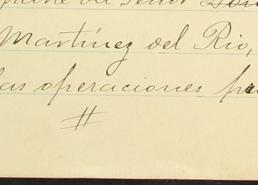 de Señor
Martínez del Rio,
las operaciones
#